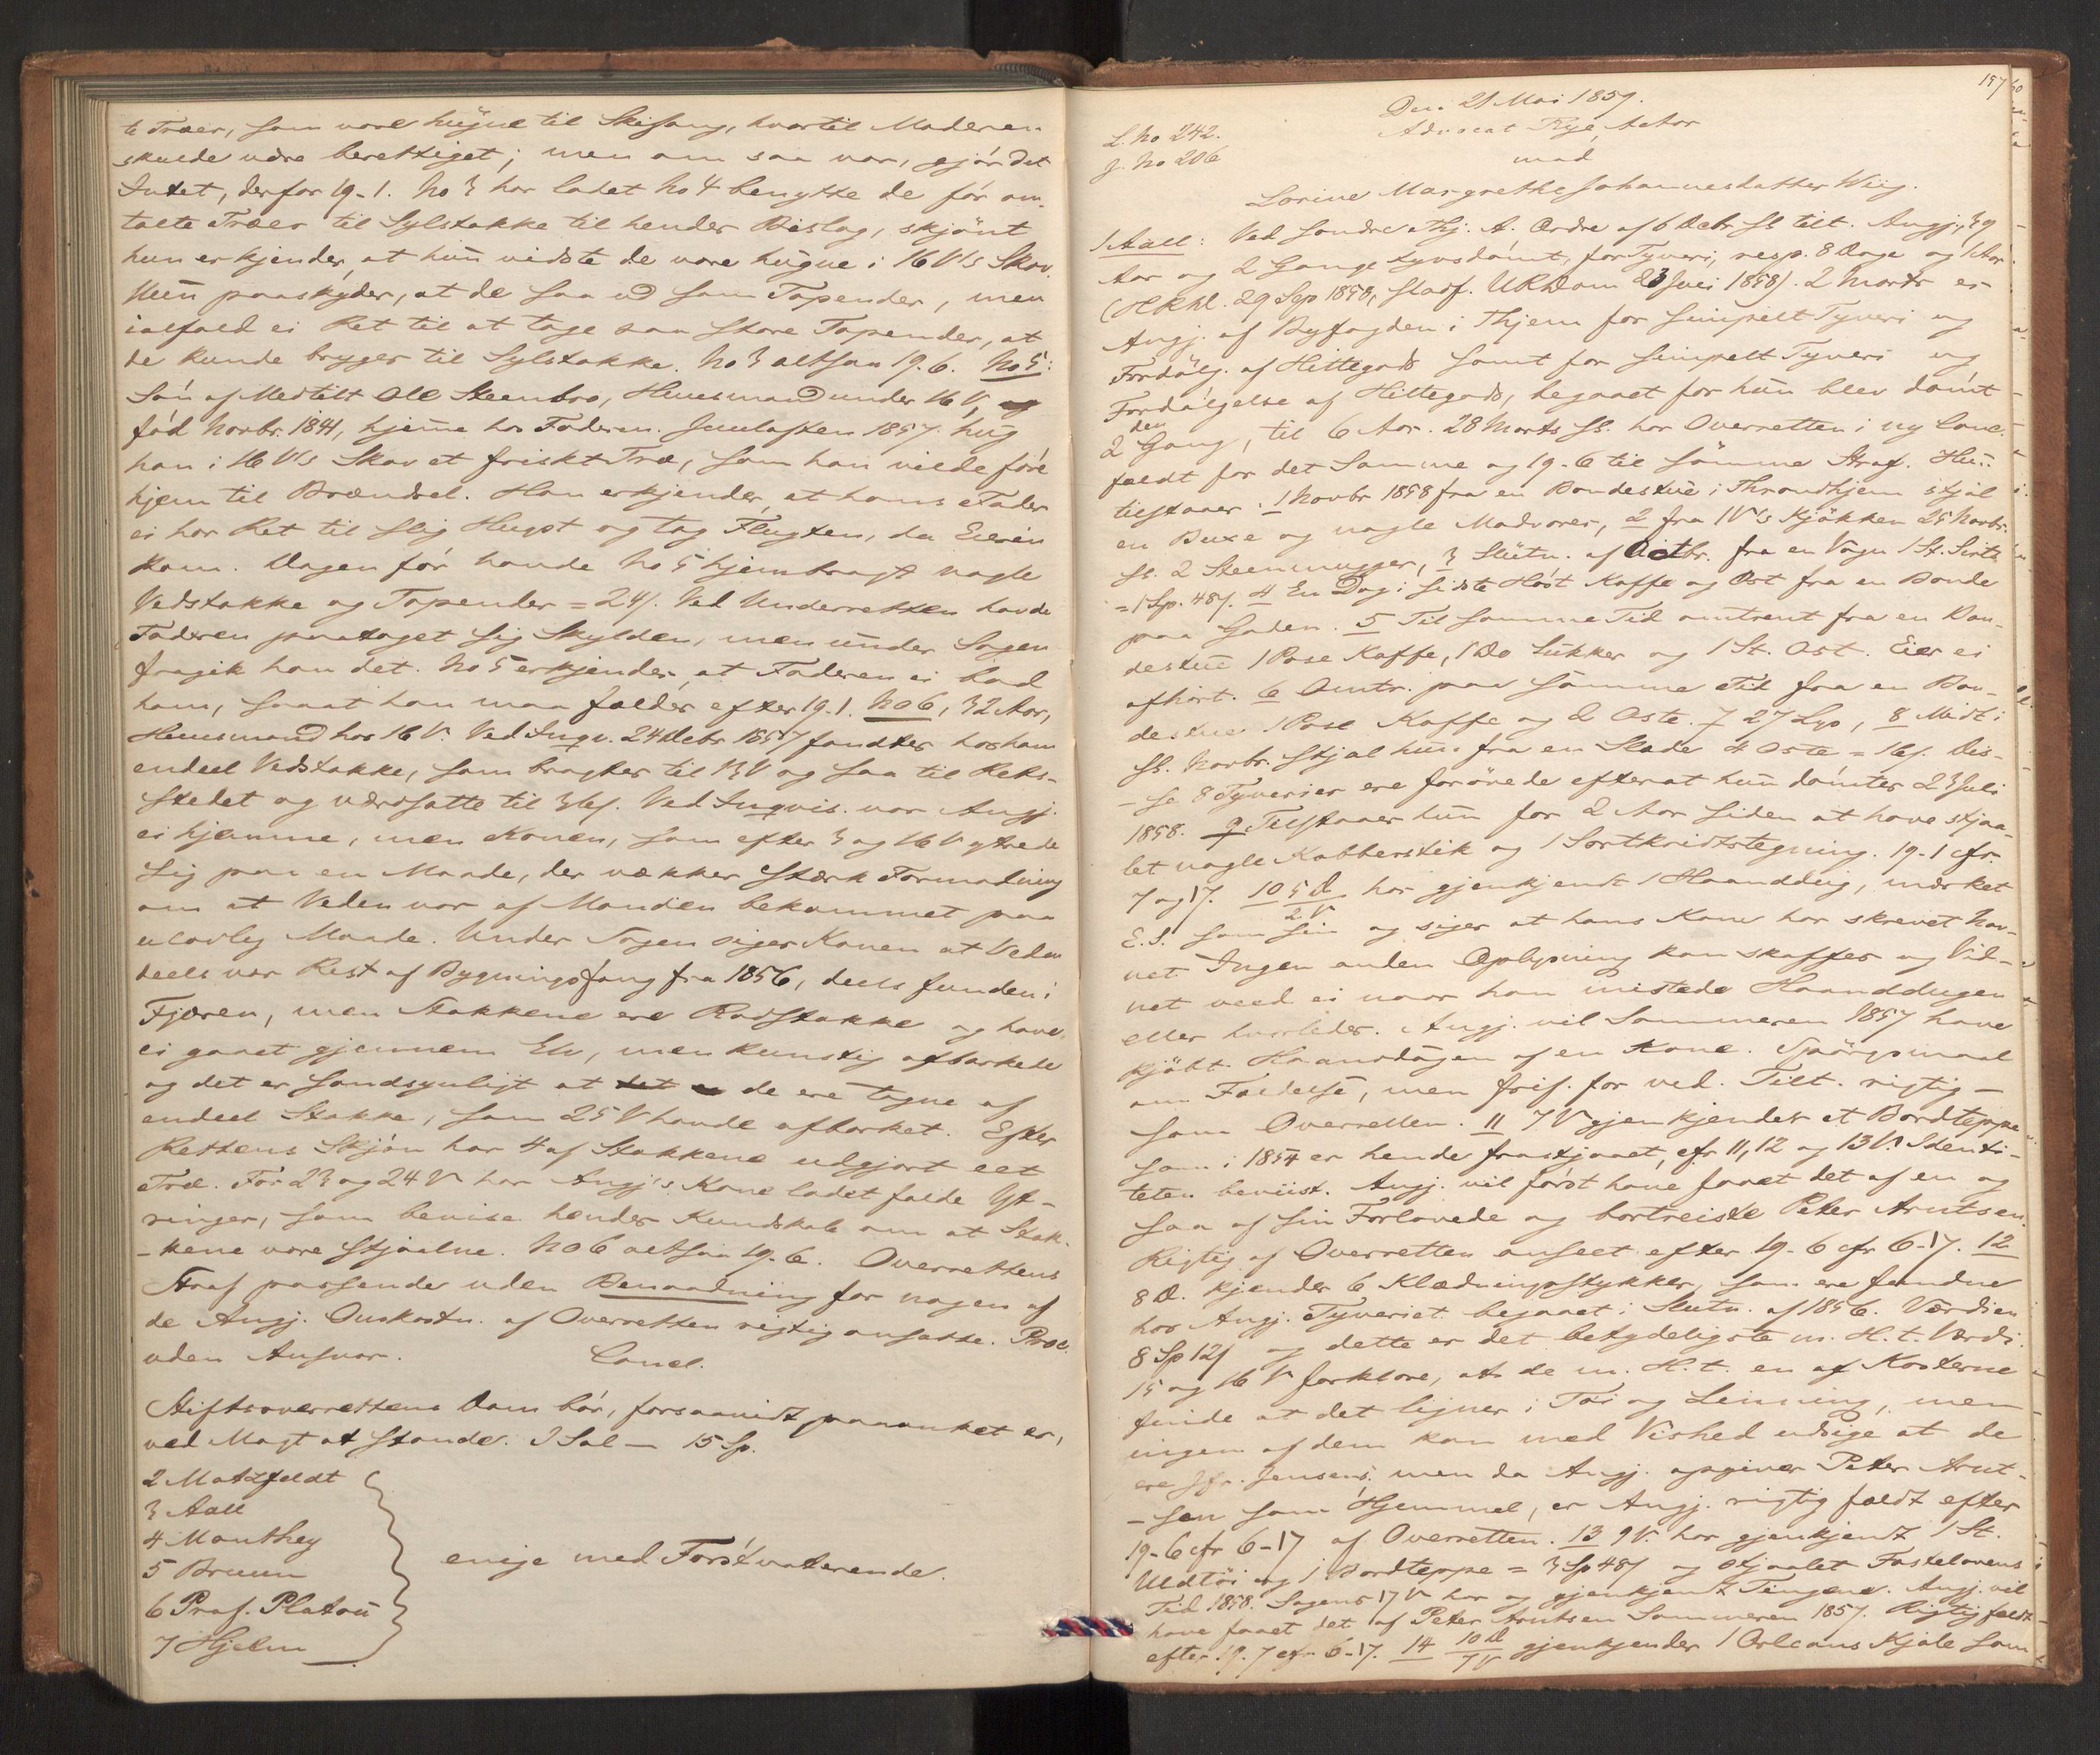 te Træer, som vare hugne til Skisang, hvortil Moderen
skulde være berettiget; men om saa var, gjør det
Intet, derfor 19-1. No 3 har ladet No 4 benytte de før om-
talte Træer til Sylstokke til hendes Bislag, skjønt
hun erkjender, at hun vidste de vare hugne i 16 V's Skov.
Hun paaskyder, at de saa ud som Topender, men
ialfald ei Ret til at tage saa store Topender, at
de kunde bruges til Sylstokke. No 3 altsaa 19-6. No 5:
Søn af Medtilt Ole Steenbro, Huusmand under 16 V,
fød Novbr. 1841, hjemme hos Faderen. Juulaften 1857 hug
han i 16 V's Skov et friskt Træ, som han vilde føre
hjem til Brændsel. Han erkjender, at hans Fader
ei har Ret til slig Hugst og tog Flugten, da Eieren
kom. Dagen før havde No 5 hjembragt nogle
Vedstokke og Topender = 24 s. Ved Underretten havde
Faderen paataget sig Skylden, men under Sagen
fragik han det. No 5 erkjender, at Faderen ei bad
ham, saaat han maa fældes efter 19-1. No 6, 32 Aar,
Huusmand hos 16 V. Ved Inqv. 24 Debr 1857 fandtes hos ham
endeel Vedstokke, som bragtes til 13 V og saa til Rets-
stedet og værdsatte til 36 s. Ved Inqvis. var Angj.
ei hjemme, men Konen, som efter 3 og 16 V ytrede
sig paa en Maade, der vækker stærk Formodning
om at Veden var af Manden bekommet paa
ulovlig Maade. Under Sagen siger Konen at Veden
deels var Rest af Bygningsfang fra 1856, deels funden i
Fjæren, men Stokkene ere Rodstokke og have
ei gaaet gjennem Elv, men kunstig afbarkede
og det er sandsynligt at de ere tagne af
endeel Stokke, som 25 V havde afbarket. Efter
Rettens Skjøn har 4 af Stokkene udgjort eet
Træ. For 23 og 24 V har Angj's Kone ladet falde Yt-
ringer, som bevise hendes Kundskab om at Stok-
-kene vare stjaalne. No 6 altsaa 19-6. Overrettens
Straf passende uden Benaadning for nogen af
de Angj. Omkostn. af Overretten rigtig ansatte. Proc.
uden Ansvar. Concl.
Stiftsoverrettens Dom bør, forsaavidt paaanket er,
ved Magt at stande. I Sal — 15 Sp.
2 Motzfeldt
3 Aall
4 Manthey
5 Bruun
6 Prof. Platou
7 Hjelm
enige med Førstvoterende.
197
Den 21 Mai 1859.
L. No 242. Advocat Rye, Actor
J. No 206 mod
Lorine Margrethe Johannesdatter Wiig.
1 Aall: Ved Søndre Thj. A. Ordre af 6 Debr. f. A. tilt. Angj., 39
Aar og 2 Gange tyvsdømt, for Tyveri, resp. 8 Dage og 1 Aar
(HRKl. 29 Sep 1858, stadf. URDom 23 Juli 1858). 2 Marts er
Angj. af Byfogden i Thjem for simpelt Tyveri og
Fordølg. af Hittegods samt for simpelt Tyveri og
Fordølgelse af Hittegods, begaaet før hun blev dømt
2den Gang, til 6 Aar. 28 Marts ss. har Overretten i ny Concl.
fældt for det Samme og 19-6 til samme Straf. Hun
tilstaaer: 1 Novbr 1858 fra en Bondestue i Throndhjem stjal
en Buxe og nogle Madvarer, 2 fra 1 V's Kjøkken 25 Novbr.
ss. 2 Steenmugger, 3 Slutn. af Octbr. fra en Vogn 1 St.
= 1 Sp. 48 s. 4 En Dag i sidste Høst Kaffe og Ost fra en Bonde
paa Gaden. 5 Til samme Tid omtrent fra en Bon-
destue 1 Pose Kaffe, 1 Do Sukker og 1 St. Ost. Eier ei
afhørt. 6 Omtr. paa samme Tid fra en Bon-
destue 1 Pose Kaffe og 2 Oste. 7 27 Lys, 8 Midt i
ss. Novbr. stjal hun fra en Slæde 4 Oste = 16 s. Dis-
-se 8 Tyverier ere forøvede efterat hun dømtes 23 Juli
1858. 9 Tilstaaer hun for 2 Aar siden at have stjaa-
let nogle Kobberstik og 1 Sortkridtstegning. 19-1 cfr.
7 og 17. 10 5 D 2 V har gjenkjendt 1 Haanddug, mærket
E.S. som sin og siger at hans Kone har skrevet Nav-
net. Ingen anden Oplysning kan skaffes og Vid-
net veed ei naar han mistede Haanddugen
eller hvorledes. Angj. vil Sommeren 1857 have
kjøbt Haanddugen af en Kone. Spørgsmaal
om Fældelse, men frif. for ved. Tilt. rigtig
som Overretten. 11 7 V gjenkjender et Bordteppe
som i 1854 er hende frastjaalet, cfr 11, 12 og 13 V. Identi-
teten beviist. Angj. vil først have faaet det af en og
saa af sin Forlovede og bortreiste Peter Arntsen.
Rigtig af Overretten anseet efter 19-6 cfr 6-17. 12
8 D. kjender 6 Klædningsstykker, som ere fundne
hos Angj. Tyveriet begaaet i Slutn. af 1856. Værdien
8 Sp 12 s og dette er det betydeligste m. H. t. Værdi.
15 og 16 V forklare, at de m. H. t. en af Kosterne
finde at det ligner i Tøi og Linning, men
ingen af dem kan med Vished udsige at de
ere Jfr. Jensens, men da Angj. opgiver Peter Arnt-
-sen som Hjemmel, er Angj. rigtig fældt efter
19-6 cfr 6-17 af Overretten. 13 9 V. har gjenkjendt 1 St.
Uldtøi og 1 Bordteppe = 3 Sp 48 s og stjaalet Fastelavens
Tid 1858. Sagens 17 V har og gjenkjendt Tingene. Angj. vil
have faaet det af Peter Arntsen Sommeren 1857. Rigtig fældt
efter 19-7 cfr 6-17. 14 10 D 7 V gjenkjender 1 Orleans Kjole som